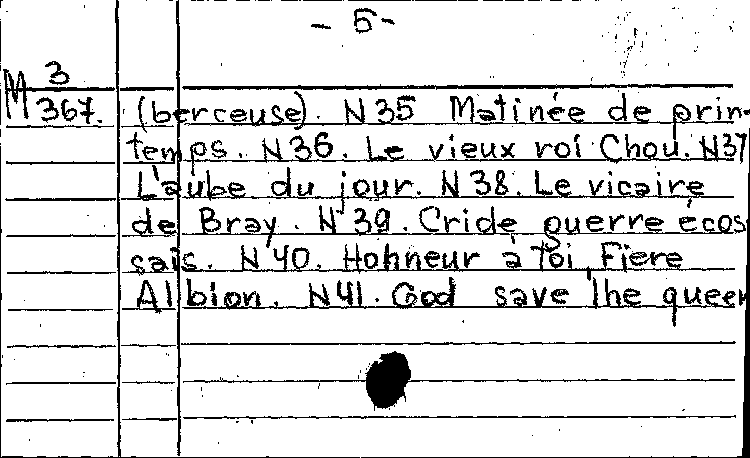 - 5 -
M 3
367. (berceuse). N 35 Matinée de prin-
temps. N 36. Le vieux roi Chou. N37
L'aube du jour. N 38. Le vicaire
de Bray. N 39. Cri de guerre écos
sais. N 40. Honneur à toi, Fiere
Albion. N 41. God save the queen